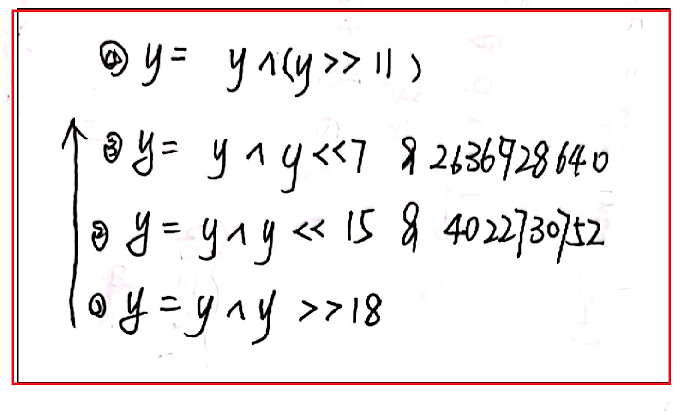 ④ y = y ^ (y >> 11)
③ y = y ^ y << 7 & 2636928640
② y = y ^ y << 15 & 4022730752
① y = y ^ y >> 18